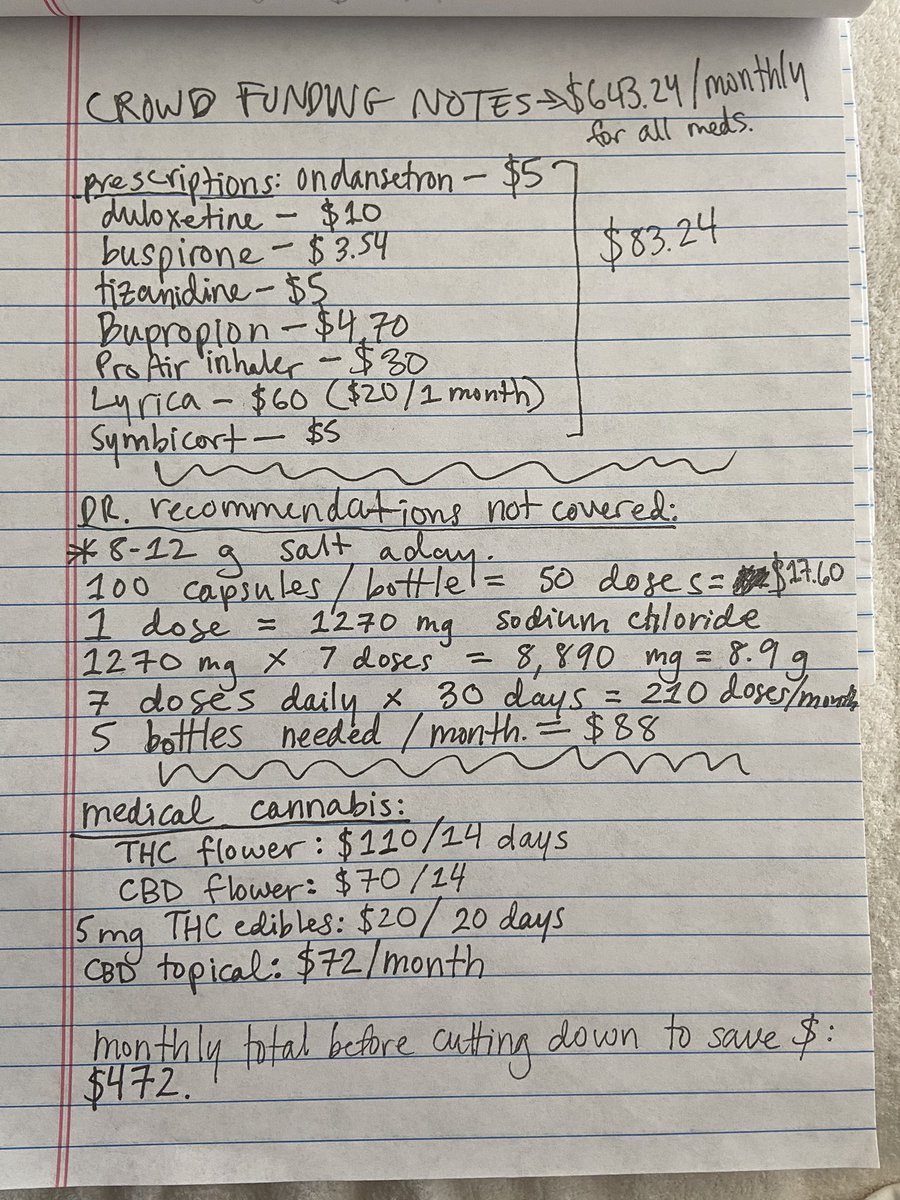 CROWD FUNDING NOTES→$643.24/monthly
for all meds.
prescriptions: ondansetron – $5
$83.24
duloxetine – $10
buspirone – $3.54
tizanidine – $5
Bupropion – $4.70
ProAir inhaler – $30
Lyrica – $60 ($20/1 month)
Symbicort – $5
DR. recommendations not covered:
* 8-12 g salt a day.
100 capsules/bottle = 50 doses = $17.60
1 dose = 1270 mg sodium chloride
1270 mg x 7 doses = 8,890 mg = 8.9 g
7 doses daily x 30 days = 210 doses/month
5 bottles needed/month. = $88
medical cannabis:
THC flower: $110/14 days
CBD flower: $70/14
5 mg THC edibles: $20/20 days
CBD topical: $72/month
monthly total before cutting down to save $:
$472.